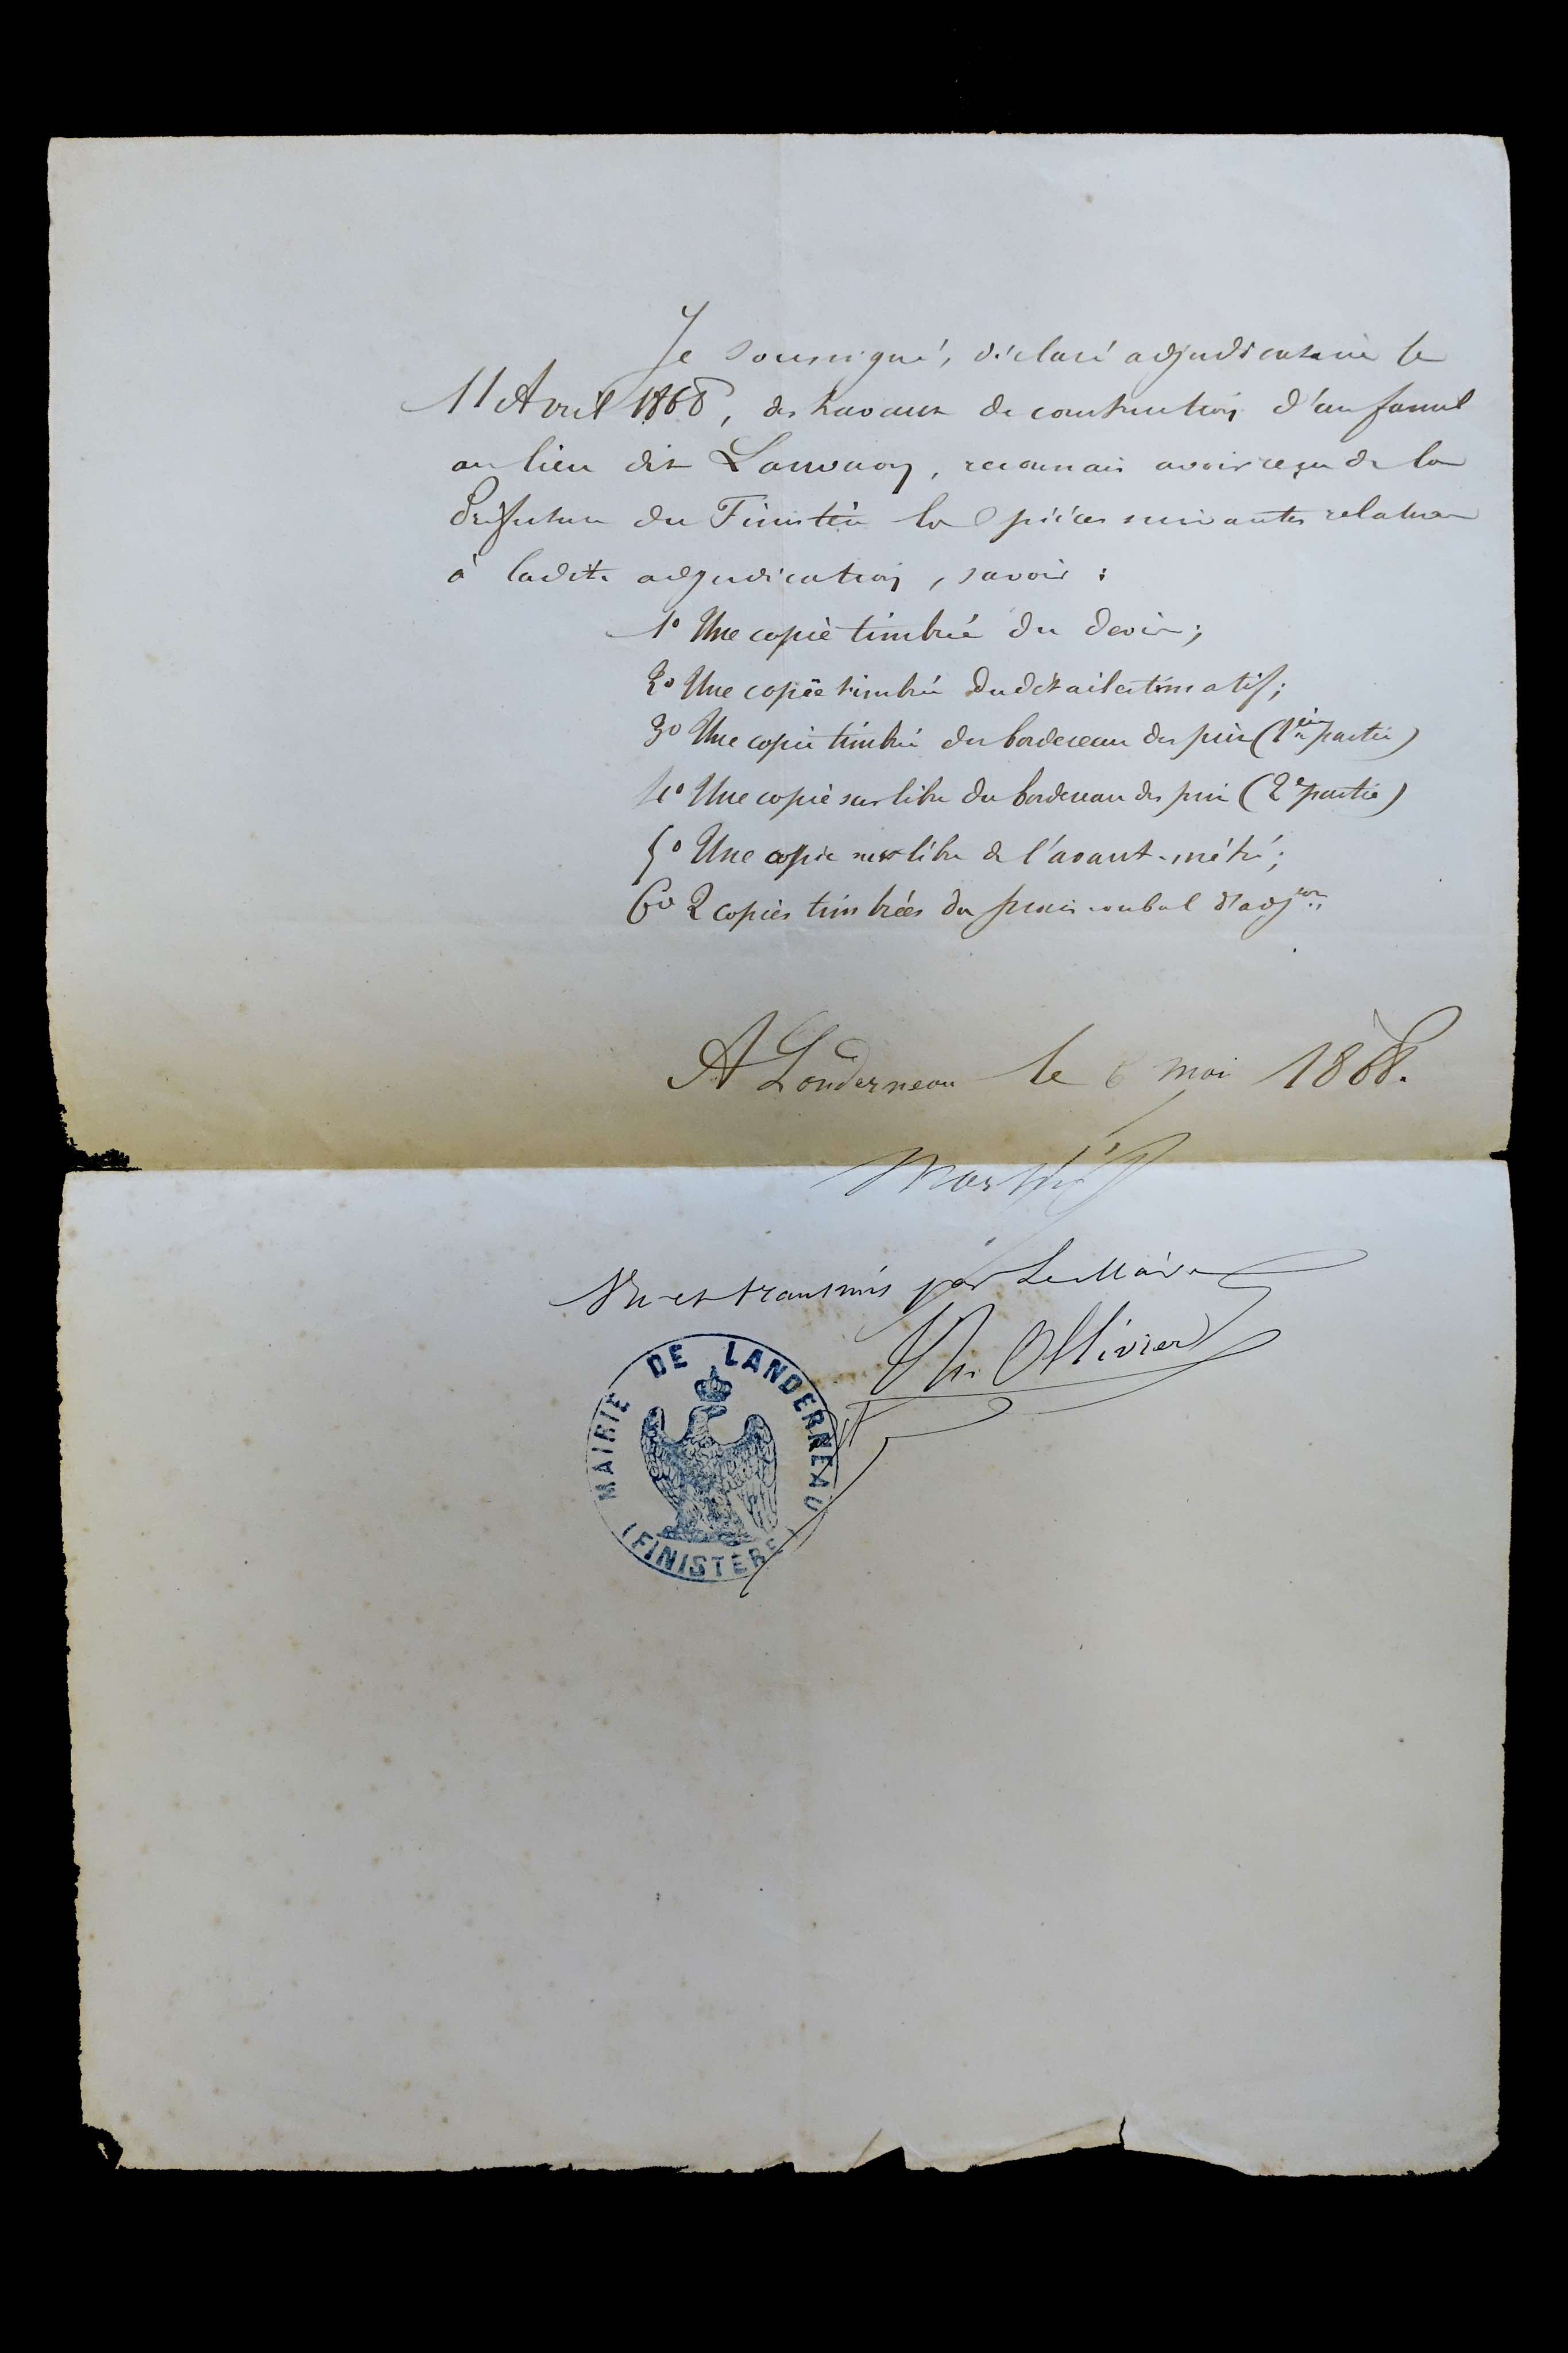 Je soussigné, déclaré adjudicataire le
11 Avril 1868, des travaux de construction d'un fanal
au lieu dit Lanvaon, reconnais avoir reçu de la
Préfecture du Finistère les pièces suivantes relatives
à ladite adjudication, savoir :
1° Une copie timbrée du devis;
2° Une copie timbrée du détail estimatif;
3° Une copie timbrée du bordereau des prix (1ère partie)
4° Une copie sur libre du bordereau des prix (2e partie)
5° Une copie sur libre de l'avant-métré;
6° 2 copies timbrées du procès verbal d'adjon
A Landerneau le 6 mai 1868.
Vu et transmis par Le Maire
Ollivier
MAIRIE DE LANDERNEAU
(FINISTÈRE)